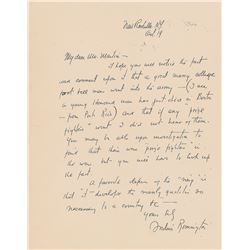 New Rochelle, N.Y.
Oct 19
My dear Mr.
I hope you will notice the fact
and comment upon it that a good many college
foot ball men went into the army — (I see
a young Harvard man has just died in Boston
— from Porto Rico) and that if any "prize
fighters" went I did not hear of them
You may be able upon investigation to
prove that there were prize fighters in
the war but you will have to look up
the fact.
A favorite defense of the "ring" is
that it develops the manly qualities so
necessary to a country etc —
Yours truly
Frederic Remington